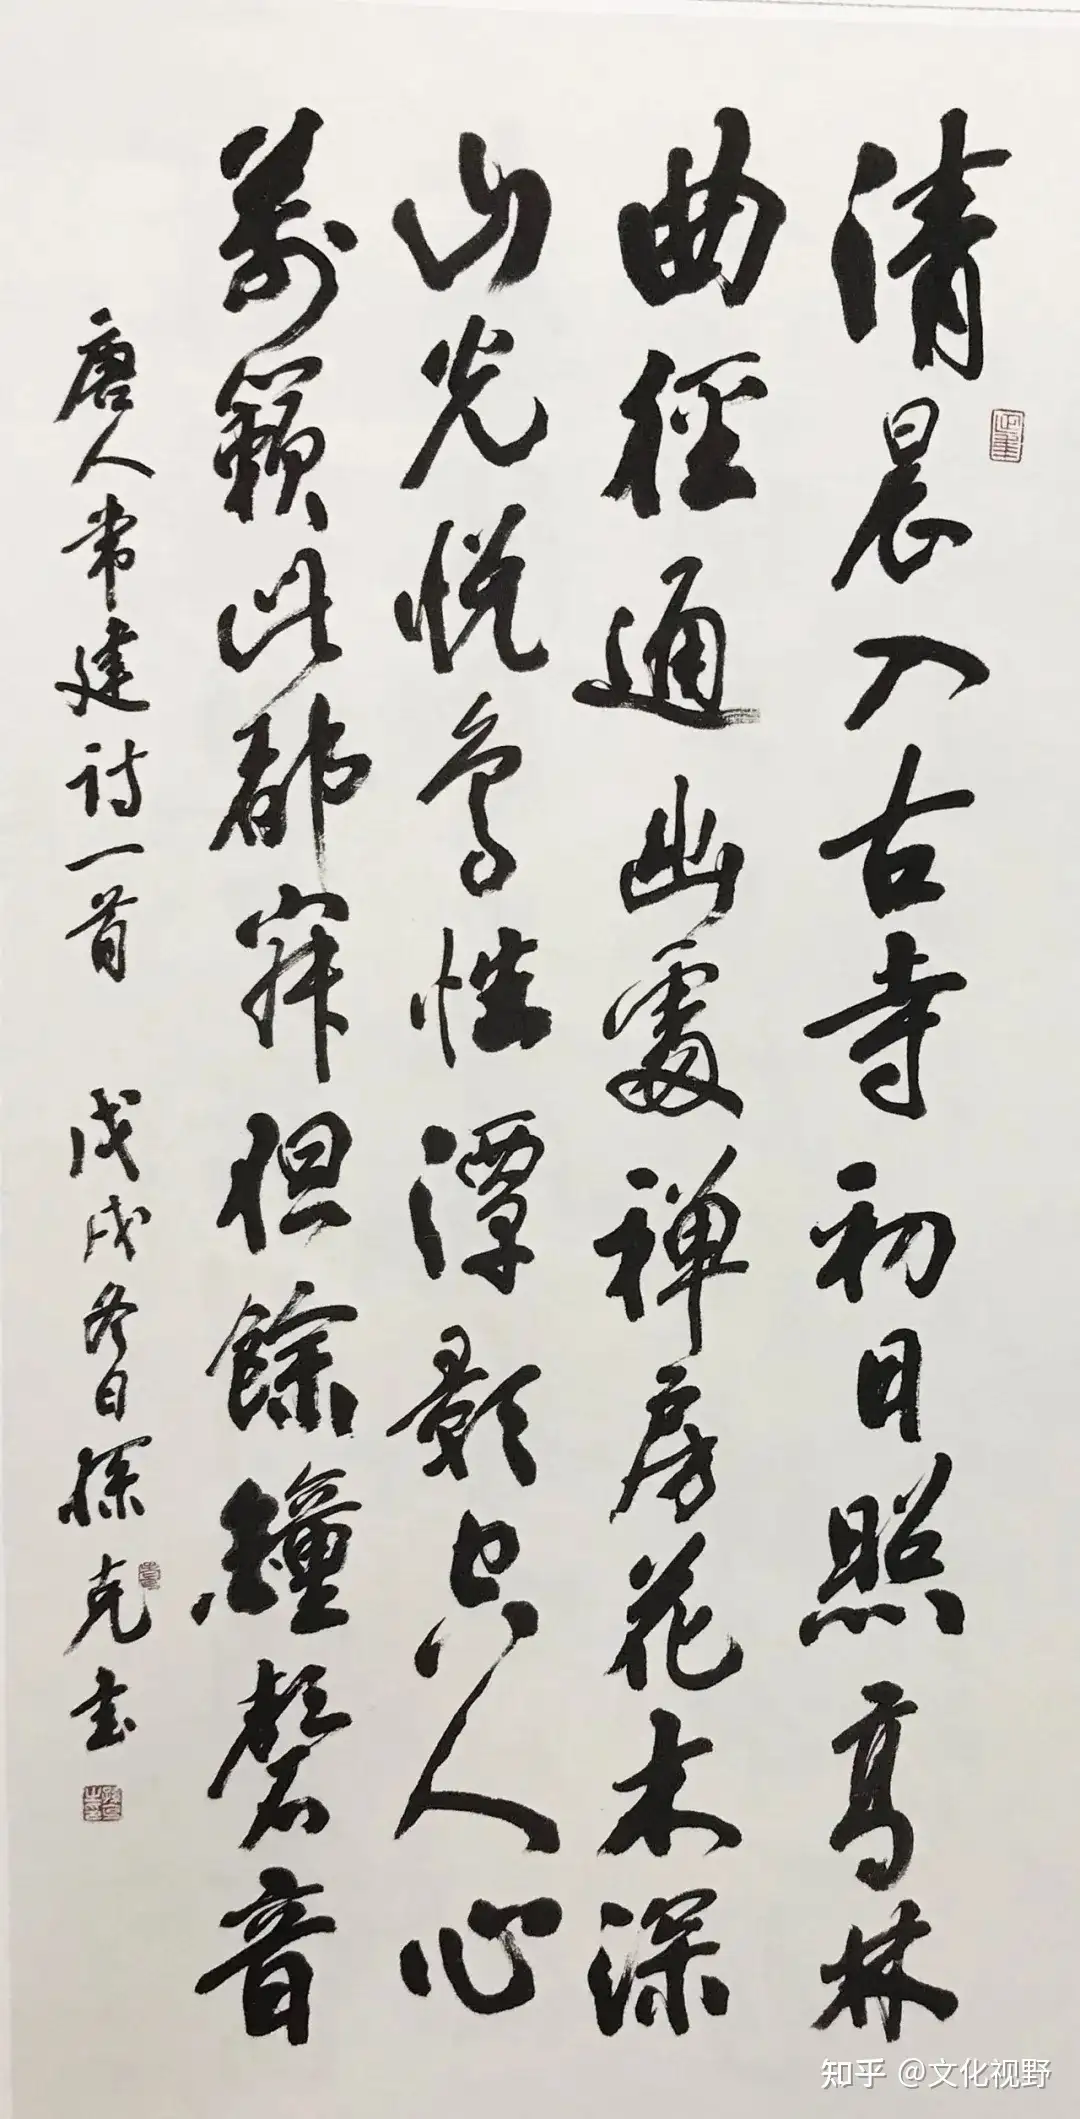 清晨入古寺初日照高林
曲徑通幽處禅房花木深
山光悦鳥性潭影空人心
萬籟此都寂但餘鐘磬音
唐人常建诗一首 戊戌冬日探克书
知乎 @文化视野